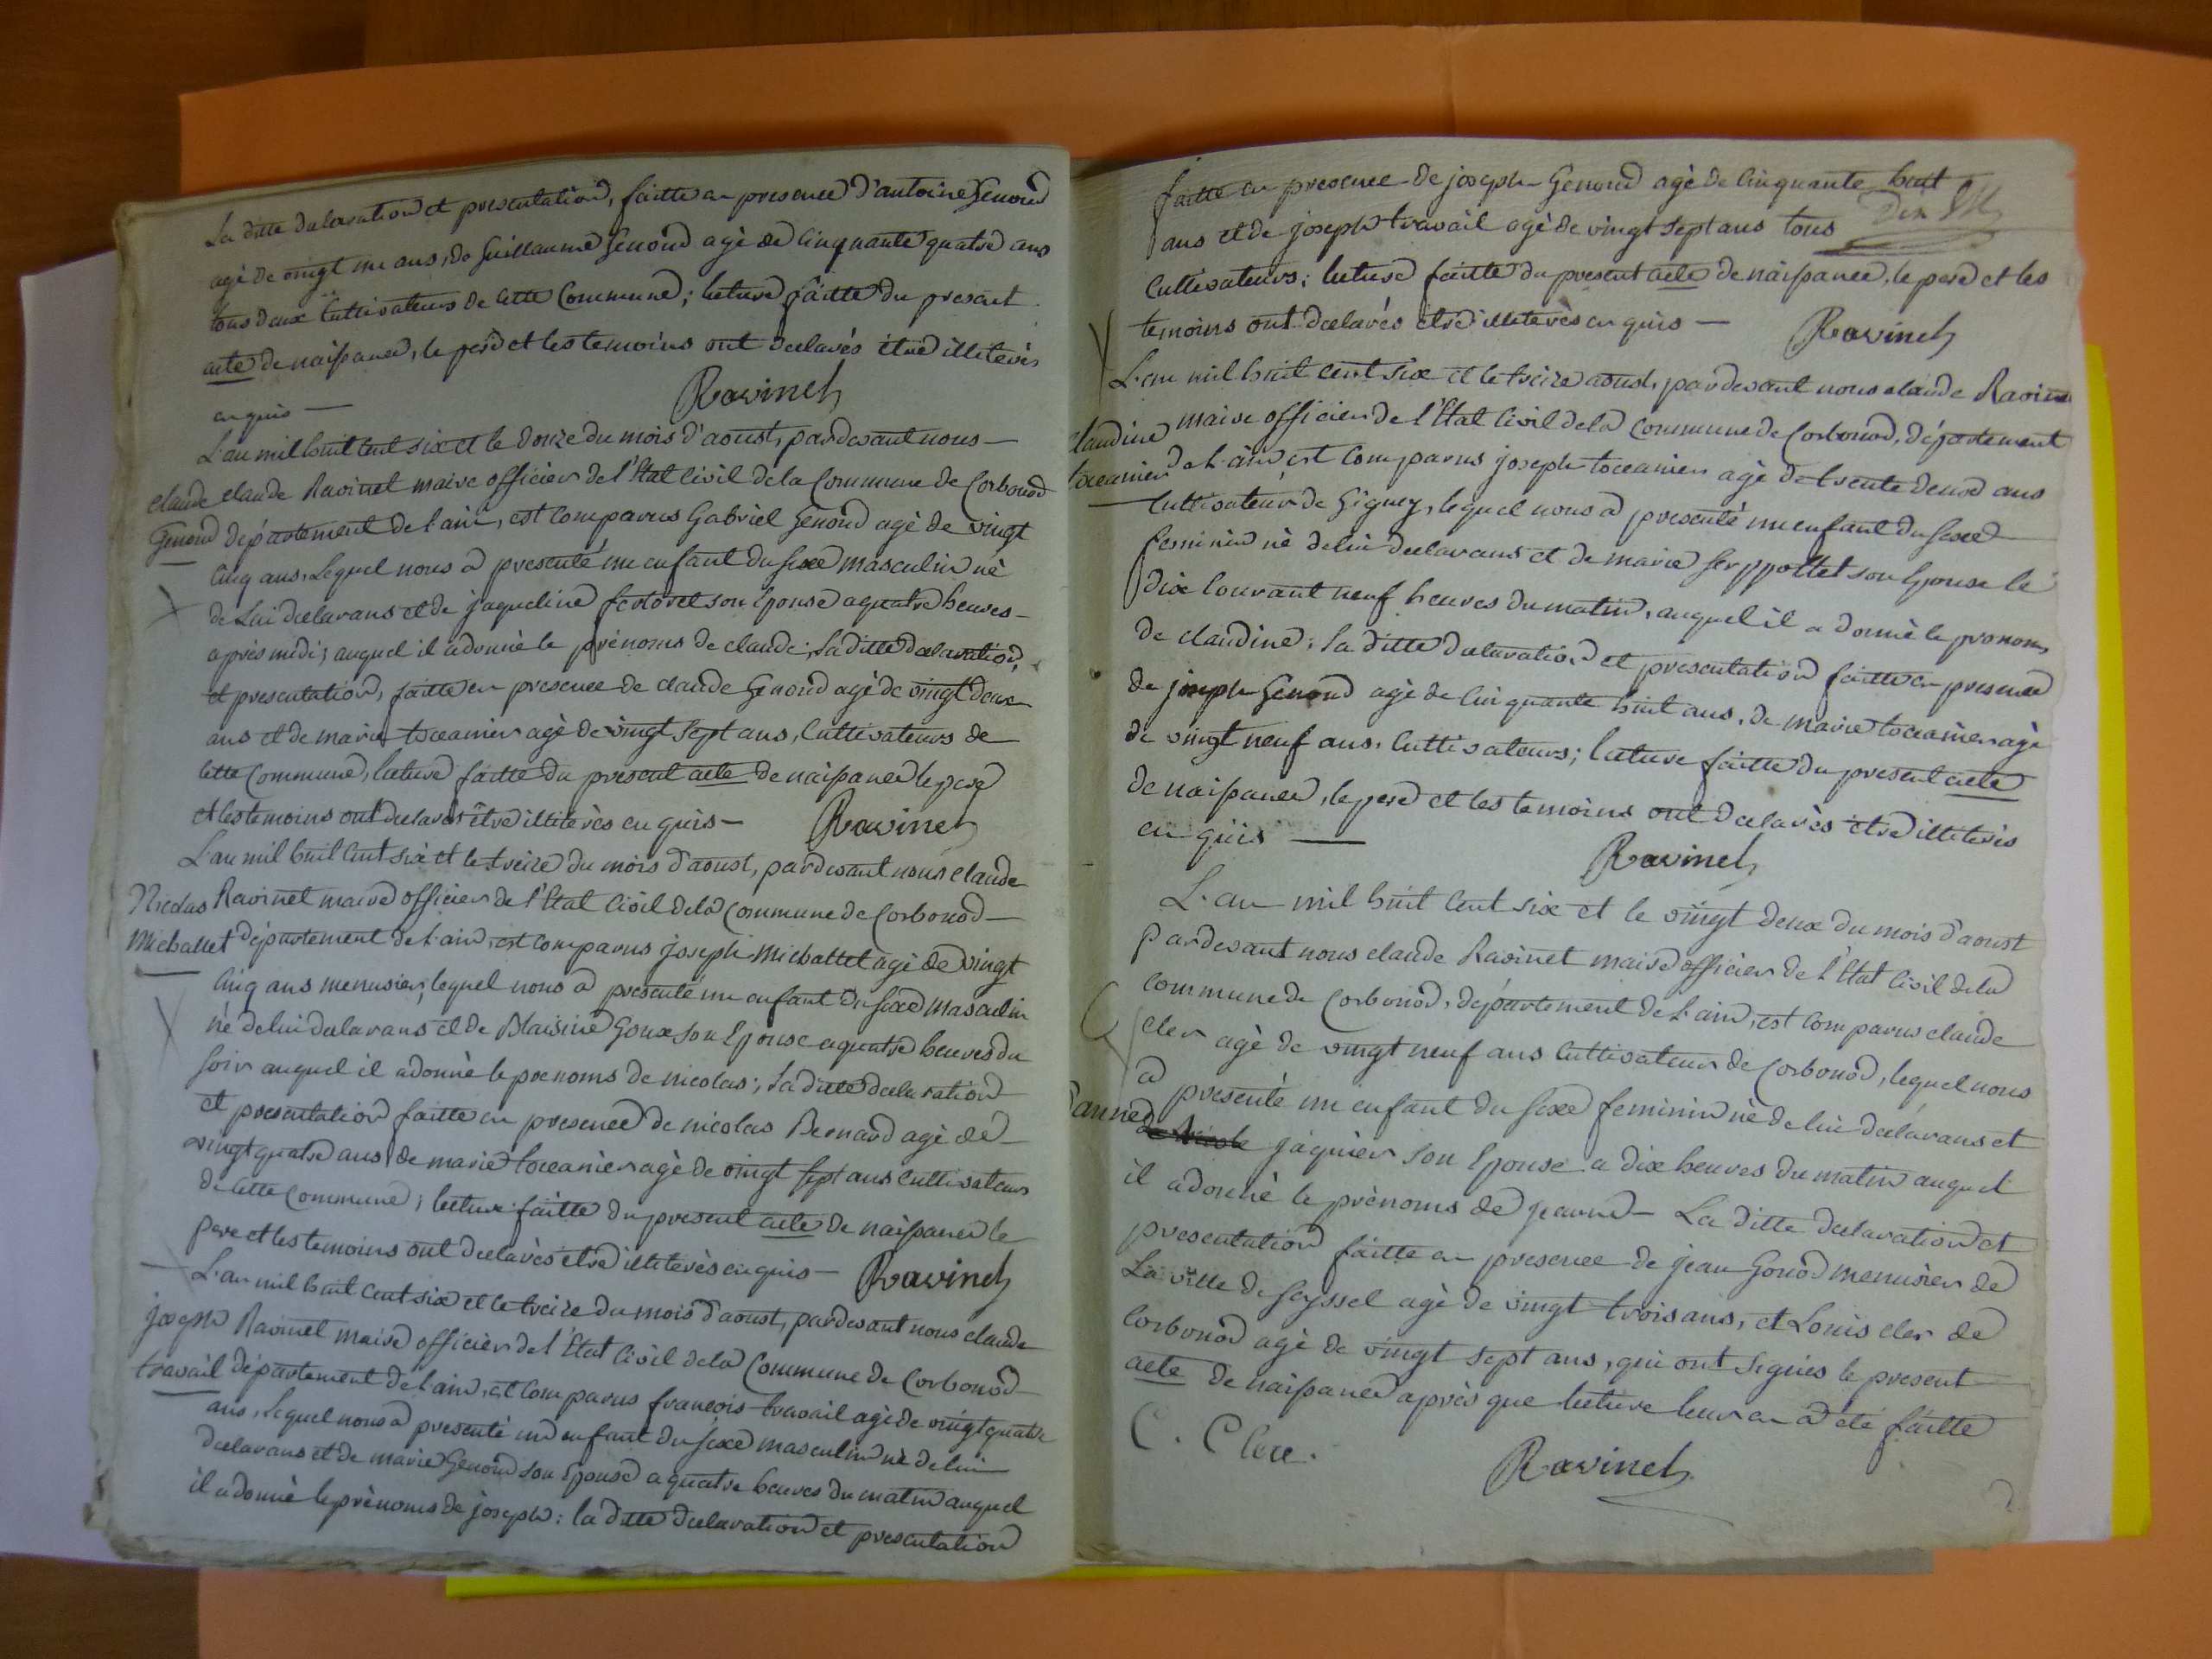 La ditte declaration et presentation, faitte en presence d'antoine Genoud
agé de vingt un ans, de Guillaume Genoud agé de Cinquante quatre ans
tous deux Cultivateurs de Cette Commune; lecture faitte du present
acte de naissance, le pere et les temoins ont declarés être illiterés
enquis —
Ravinet
L'an mil huit Cent six et le douze du mois d'aoust, pardevant nous —
claude Ravinet maire officier de l'Etat Civil de la Commune de Corbonod
claude
Genoud
département de l'ain, est Comparus Gabriel Genoud agé de vingt
Cinq ans, Lequel nous a presenté un enfant du sexe masculin né
de Lui declarans et de jaqueline son Epouse a quatre heures —
après midi; auquel il a donné le prénoms de claude; la ditte declaration
et presentation, faitte en presence de claude Genoud agé de vingt deux
ans et de marie toccanier agé de vingt sept ans, Cultivateurs de
Cette Commune, lecture faitte du present acte de naissance le pere
et les temoins ont declarés être illiterés enquis —
Ravinet
L'an mil huit Cent six et le treize du mois d'aoust, pardevant nous claude
Nicolas
Michallet
Ravinet maire officier de l'Etat Civil de la Commune de Corbonod —
département de l'ain, est comparus joseph Michallet agé de vingt
Cinq ans menusier, lequel nous a presenté un enfant du sexe masculin
né de lui declarans et de Blaisine Goux son Epouse a quatre heures du
soir auquel il a donné le prenoms de nicolas; la ditte declaration
et presentation faitte en presence de nicolas Bernard agé de
vingt quatre ans, de marie toccanier agé de vingt sept ans Cultivateurs
de Cette Commune; lecture faitte du present acte de naissance le
pere et les temoins ont declarés être illiterés enquis —
Ravinet
L'an mil huit Cent six et le treize du mois d'aoust, pardevant nous claude
joseph
travail
Ravinet maire officier de l'Etat Civil de la Commune de Corbonod
département de l'ain, est Comparus françois travail agé de vingt quatre
ans, Lequel nous a presenté un enfant du sexe masculin né de lui
declarans et de marie Genoud son Epouse a quatre heures du matin auquel
il a donné le prénoms de joseph: la ditte declaration et presentation
faitte en presence de joseph Genoud agé de Cinquante huit
ans et de joseph travail agé de vingt sept ans tous
Cultivateurs; lecture faitte du present acte de naissance, le pere et les
temoins ont declarés être illiterés enquis —
Ravinet
L'an mil huit cent six et le treize aoust, pardevant nous claude Ravinet
claudine
toccanier
maire officier de l'Etat Civil de la Commune de Corbonod, département
de l'ain est Comparus joseph toccanier agé de trente deux ans
Cultivateur de Gigney, lequel nous a presenté un enfant du sexe
feminin né de lui declarans et de marie son Epouse le
dix Courant neuf heures du matin, auquel il a donné le pronoms
de claudine; la ditte declaration et presentation faitte en presence
de joseph Genoud agé de Cinquante huit ans, de marie toccanier agé
de vingt neuf ans, Cultivateurs; lecture faitte du present acte
de naissance, le pere et les temoins ont declarés être illiterés
en quis —
Ravinet
L'an mil huit Cent six et le vingt deux du mois d'aoust
pardevant nous claude Ravinet maire officier de l'Etat Civil de la
commune de Corbonod, département de l'ain, est comparus claude
cler agé de vingt neuf ans Cultivateur de Corbonod, lequel nous
a presenté un enfant du sexe feminin né de lui declarans et
jaquier son Epouse a dix heures du matin auquel
il a donné le prénoms de jeanne — La ditte declaration et
presentation faitte en presence de jean Gonod menusier de
La ville de seyssel agé de vingt trois ans, et Louis cler de
Corbonod agé de vingt sept ans, qui ont signés le present
acte de naissance après que lecture leur en a été faitte
C. Clerc.
Ravinet